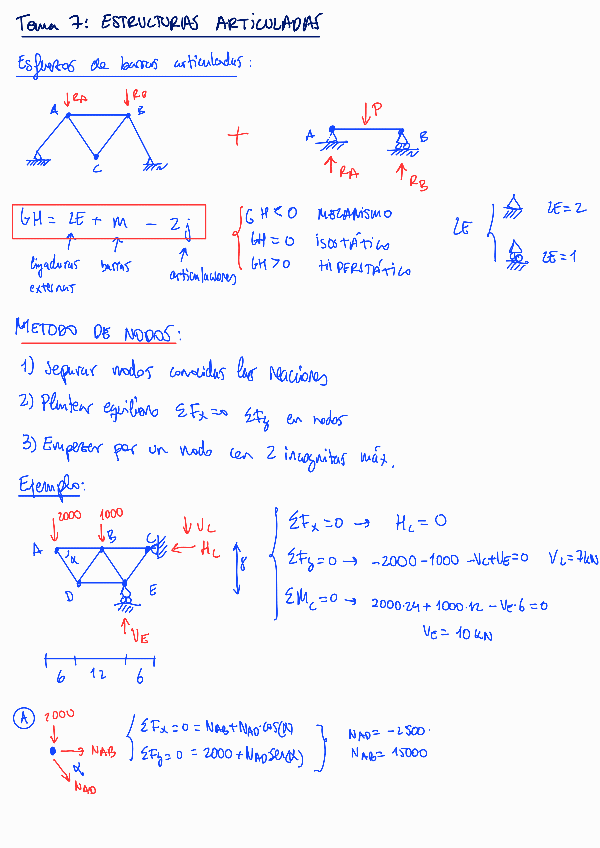 Tema 7: ESTRUCTURAS ARTICULADAS
Esfuerzos de barras articuladas:
RA RB
A B
C
+
P
A B
RA RB
GH = LE + m - 2j
ligaduras externas
barras
articulaciones
GH < 0 MECANISMO
GH = 0 ISOSTÁTICO
GH > 0 HIPERSTÁTICO
LE
LE = 2
LE = 1
METODO DE NODOS:
1) Separar nodos conocidas las reacciones
2) Plantear equilibrio ΣFx=0 ΣFy en nodos
3) Empezar por un nodo con 2 incognitas máx.
Ejemplo:
2000 1000
VC
HC
A B C
α
D E
8
VE
6 12 6
ΣFx = 0 → HC = 0
ΣFy = 0 → -2000-1000 -VC+VE=0 VC=7kN
ΣMC = 0 → 2000·24+1000·12 - VE·6 = 0
VE = 10 kN
A
2000
NAB
α
NAD
ΣFx = 0 = NAB+NAD·cos(α)
ΣFy = 0 = 2000+NAD sen(α)
NAD = -2500·
NAB = 15000